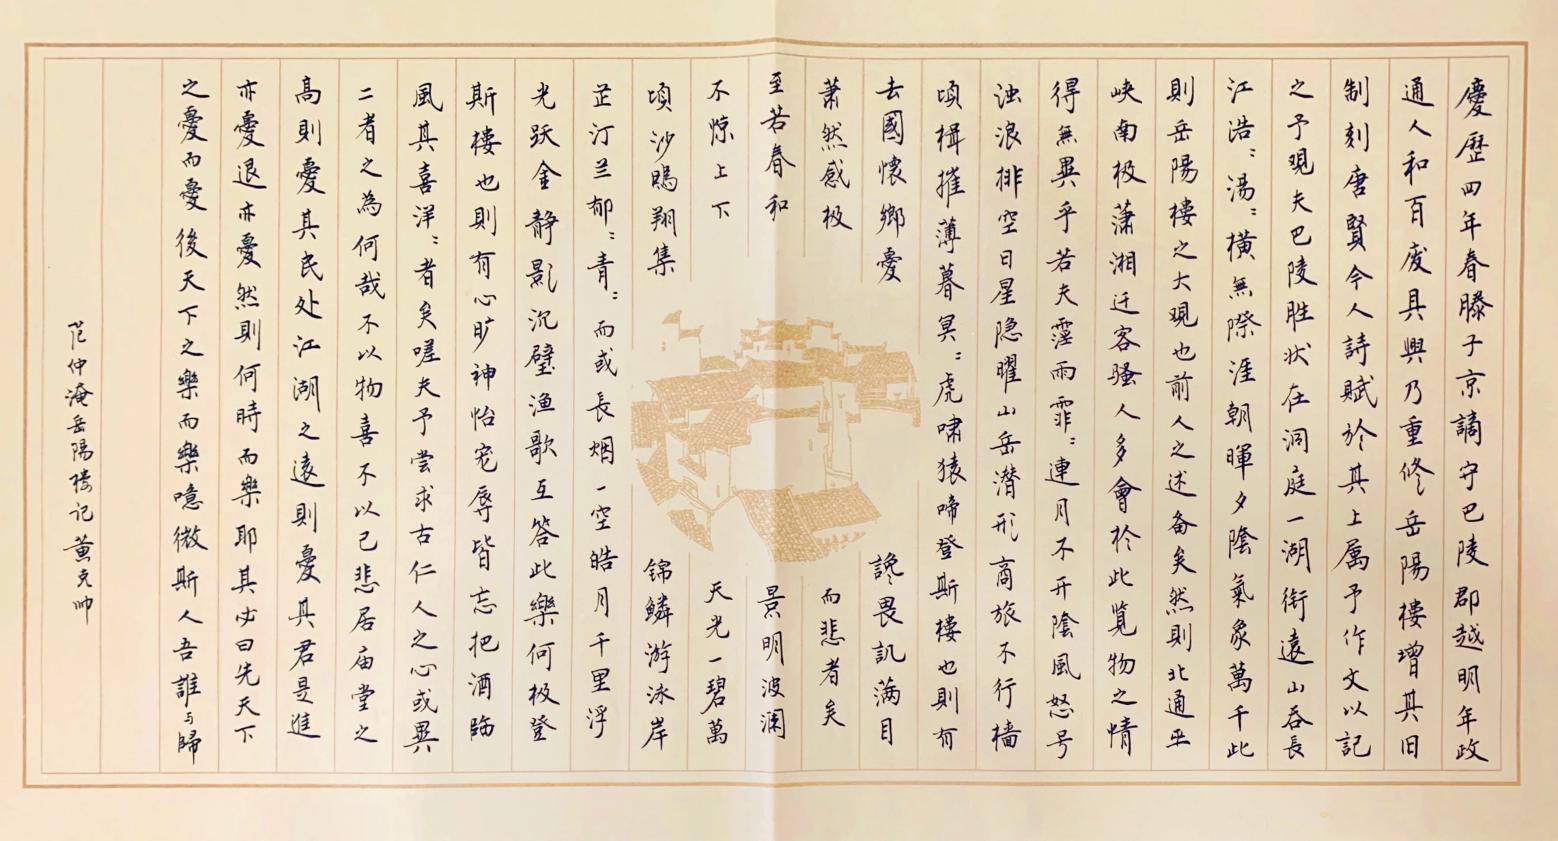 慶歷四年春滕子京謫守巴陵郡越明年政
通人和百废具興乃重修岳陽樓增其旧
制刻唐賢今人詩賦於其上属予作文以記
之予观夫巴陵胜状在洞庭一湖衔遠山吞長
江浩:湯:横無際涯朝暉夕陰氣象萬千此
則岳陽樓之大观也前人之述备矣然則北通巫
峡南极瀟湘迁客骚人多會於此覧物之情
得無異乎若夫霪雨霏:連月不开陰風怒号
浊浪排空日星隐曜山岳潜形商旅不行樯
傾楫摧薄暮冥:虎啸猿啼登斯樓也則有
去國懷鄉憂讒畏訊满目
萧然感极而悲者矣
至若春和景明波澜
不惊上下天光一碧萬
頃沙鷗翔集锦鱗游泳岸
芷汀兰郁:青:而或長烟一空皓月千里浮
光跃金静影沉璧渔歌互答此樂何极登
斯樓也則有心旷神怡宠辱皆忘把酒臨
風其喜洋:者矣嗟夫予尝求古仁人之心或異
二者之為何哉不以物喜不以己悲居庙堂之
高則憂其民处江湖之遠則憂其君是進
亦憂退亦憂然則何時而樂耶其必曰先天下
之憂而憂後天下之樂而樂噫微斯人吾誰与歸
范仲淹岳陽楼记黄克帅